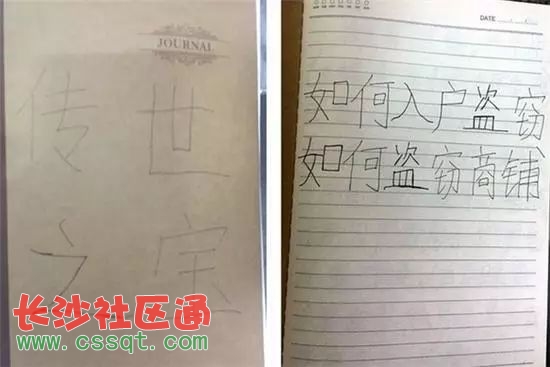 JOURNAL
传世
之宝
长沙社区通
www.cssqt.com
DATE
如何入户盗窃
如何盗窃商铺